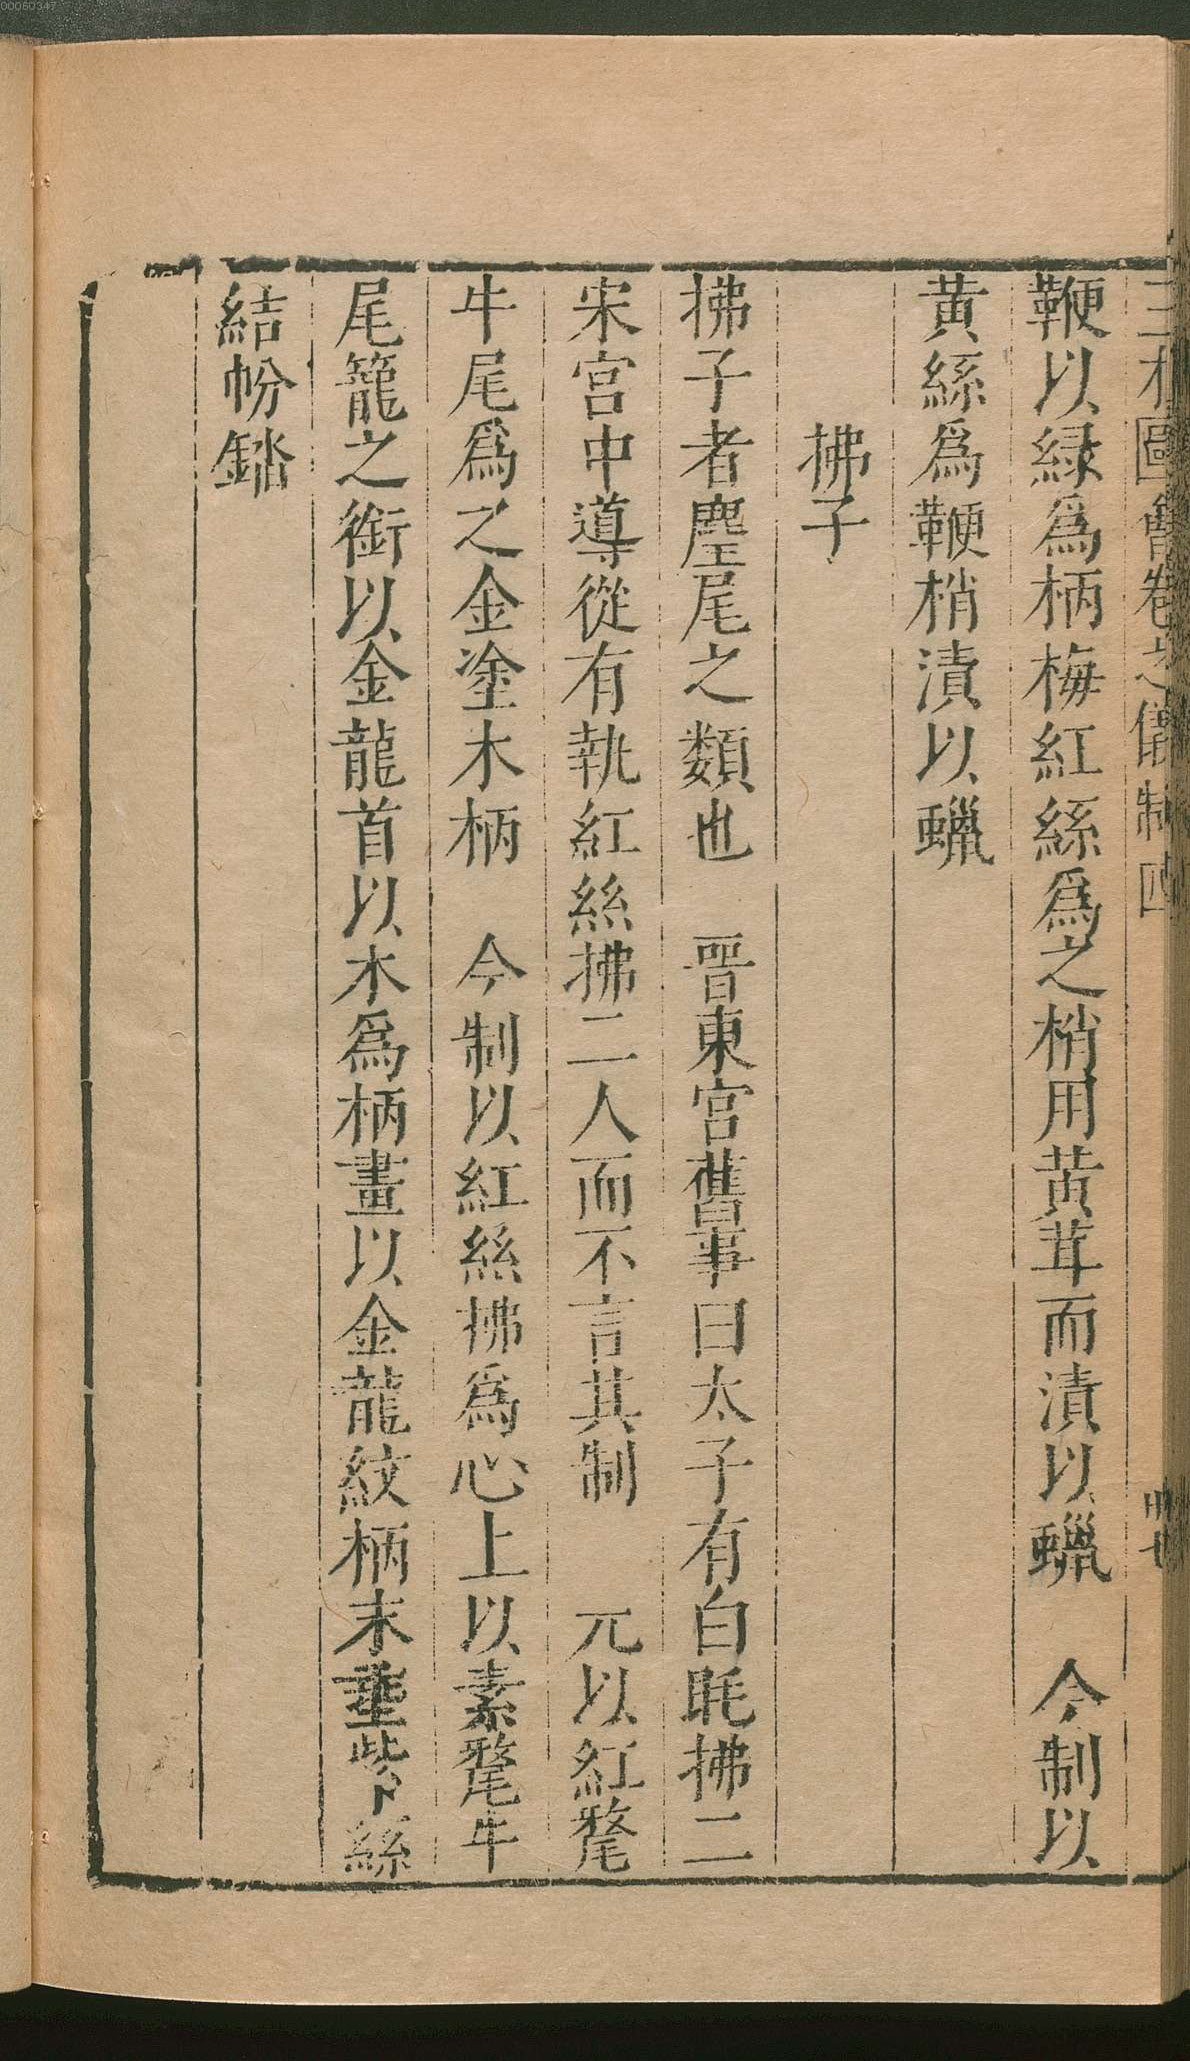 00060347
三才圖會卷之儀制四
鞭以緑爲柄梅紅絲爲之梢用黄茸而漬以蠟　今制以
黄絲爲鞭梢漬以蠟
拂子
拂子者麈尾之類也　晋東宮舊事曰太子有白眊拂二
宋宮中導從有執紅絲拂二人而不言其制　元以紅氂
牛尾爲之金塗木柄　今制以紅絲拂爲心上以素氂牛
尾籠之銜以金龍首以木爲柄畫以金龍紋柄末垂紫絲
結帉錔